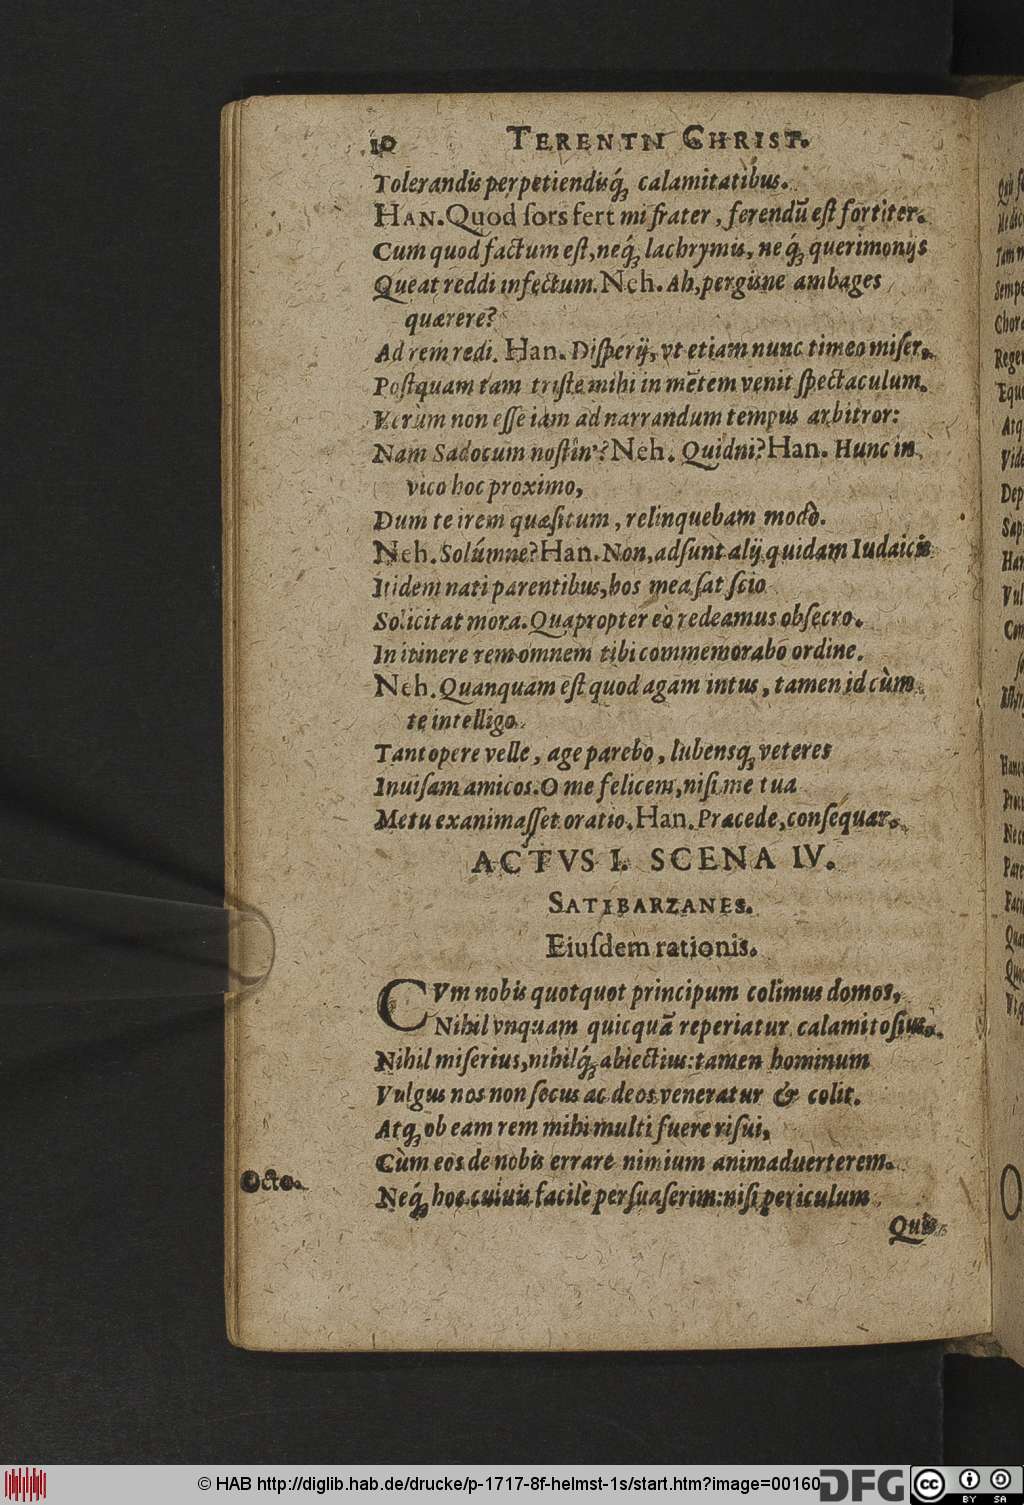 10 TERENTII CHRIST.
Tolerandis perpetiendisq́ꝫ calamitatibus.
HAN. Quod ſors fert mi frater, ferendũ eſt fortiter.
Cum quod factum eſt, neq́ꝫ lachrymis, neq́ꝫ querimonijs
Queat reddi infectum. Neh. Ah, pergisne ambages
quærere?
Ad rem redi. Han. Diſperij, vt etiam nunc timeo miſer.
Poſtquam tam triſte mihi in mẽtem venit ſpectaculum.
Verùm non eſſe iam ad narrandum tempus arbitror:
Nam Sadocum noſtin'? Neh. Quidni? Han. Hunc in
vico hoc proximo,
Dum te irem quæſitum, relinquebam modò.
Neh. Solúmne? Han. Non, adſunt alij quidam Iudaicis
Itidem nati parentibus, hos mea ſat ſcio
Solicitat mora. Quapropter eò redeamus obſecro.
In itinere rem omnem tibi commemorabo ordine.
Neh. Quanquam eſt quod agam intus, tamen id cùm
te intelligo
Tantopere velle, age parebo, lubensqꝫ veteres
Inuiſam amicos. O me felicem, niſi me tua
Metu exanimaſſet oratio. Han. Præcede, conſequar.
ACTVS I. SCENA IV.
SATIBARZANES.
Eiuſdem rationis.
CVm nobis quotquot principum colimus domos,
Nihil vnquam quicquã reperiatur calamitoſius.
Nihil miſerius, nihilq́ꝫ abiectius: tamen hominum
Vulgus nos non ſecus ac deos veneratur & colit.
Atqꝫ ob eam rem mihi multi fuere riſui,
Cùm eos de nobis errare nimium animaduerterem.
Octo.
Neq́ꝫ hoc cuiuis facilè perſuaſerim: niſi periculum
Quis
© HAB http://diglib.hab.de/drucke/p-1717-8f-helmst-1s/start.htm?image=00160
DFG
cc BY SA